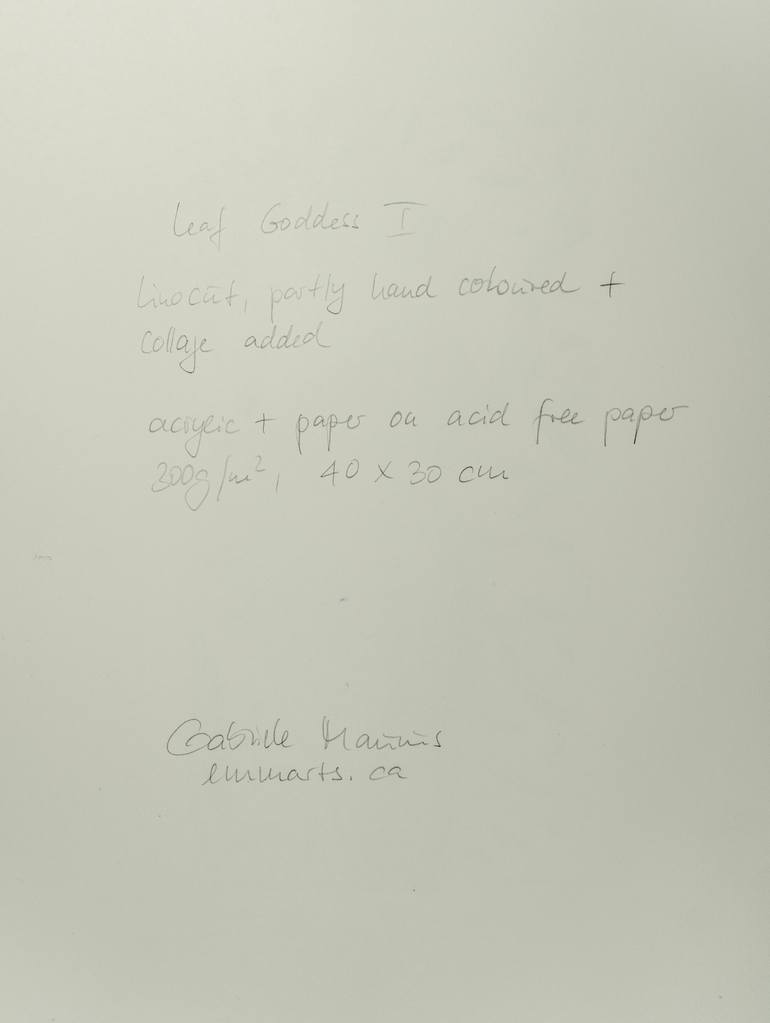 Leaf Goddess I
Linocut, partly hand coloured +
collage added
acrylic + paper on acid free paper
300g/m², 40 x 30 cm
Gabriele Maurus
emmarts.ca